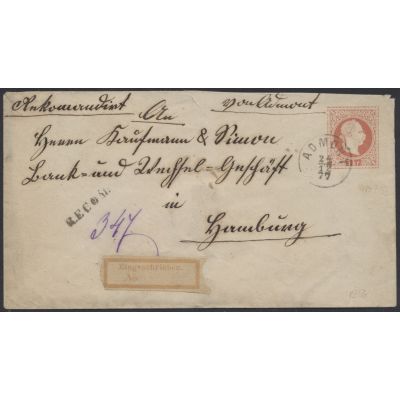 Rekomandirt von Admont
An
Herrn Kaufmann & Simon
Bank- und Wechsel-Geschäft
in
Hamburg
RECOM.
347
Eingeschrieben.
ADMONT
24
12
77